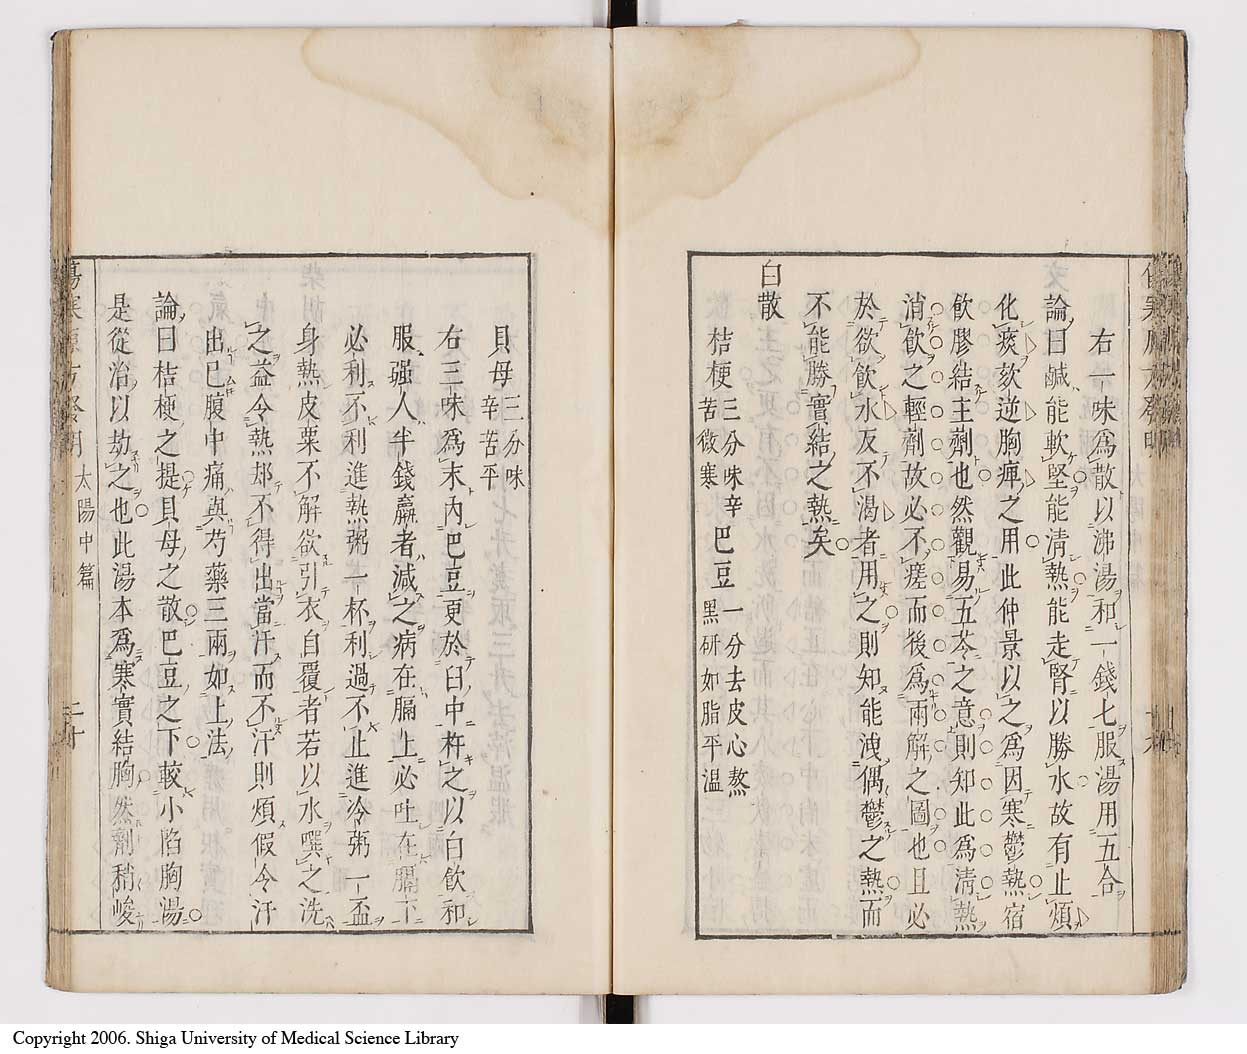 右一味爲散以沸湯和一錢七服湯用五合
論曰鹹能軟堅能淸熱能走腎以勝水故有止煩
化痰欬逆胸痺之用此仲景以之爲因寒鬱熱宿
飮膠結主劑也然觀易五苓之意則知此爲淸熱
消飮之輕劑故必不瘥而後爲兩解之圖也且必
於欲飮水反不渴者用之則知能洩偶鬱之熱而
不能勝實結之熱矣
白散
桔梗三分味辛苦微寒 巴豆一分去皮心熬黑研如脂平溫
貝母三分味辛苦平
右三味爲末內巴豆更於臼中杵之以白飮和
服强人半錢羸者減之病在膈上必吐在膈下
必利不利進熱粥一杯利過不止進冷粥一盃
身熱皮粟不解欲引衣自覆者若以水噀之洗
之益令熱却不得出當汗而不汗則煩假令汗
出已腹中痛與芍藥三兩如上法
論曰桔梗之提貝母之散巴豆之下較小陷胸湯
是從治以劫之也此湯本爲寒實結胸然劑稍峻
太陽中篇
二十
Copyright 2006. Shiga University of Medical Science Library